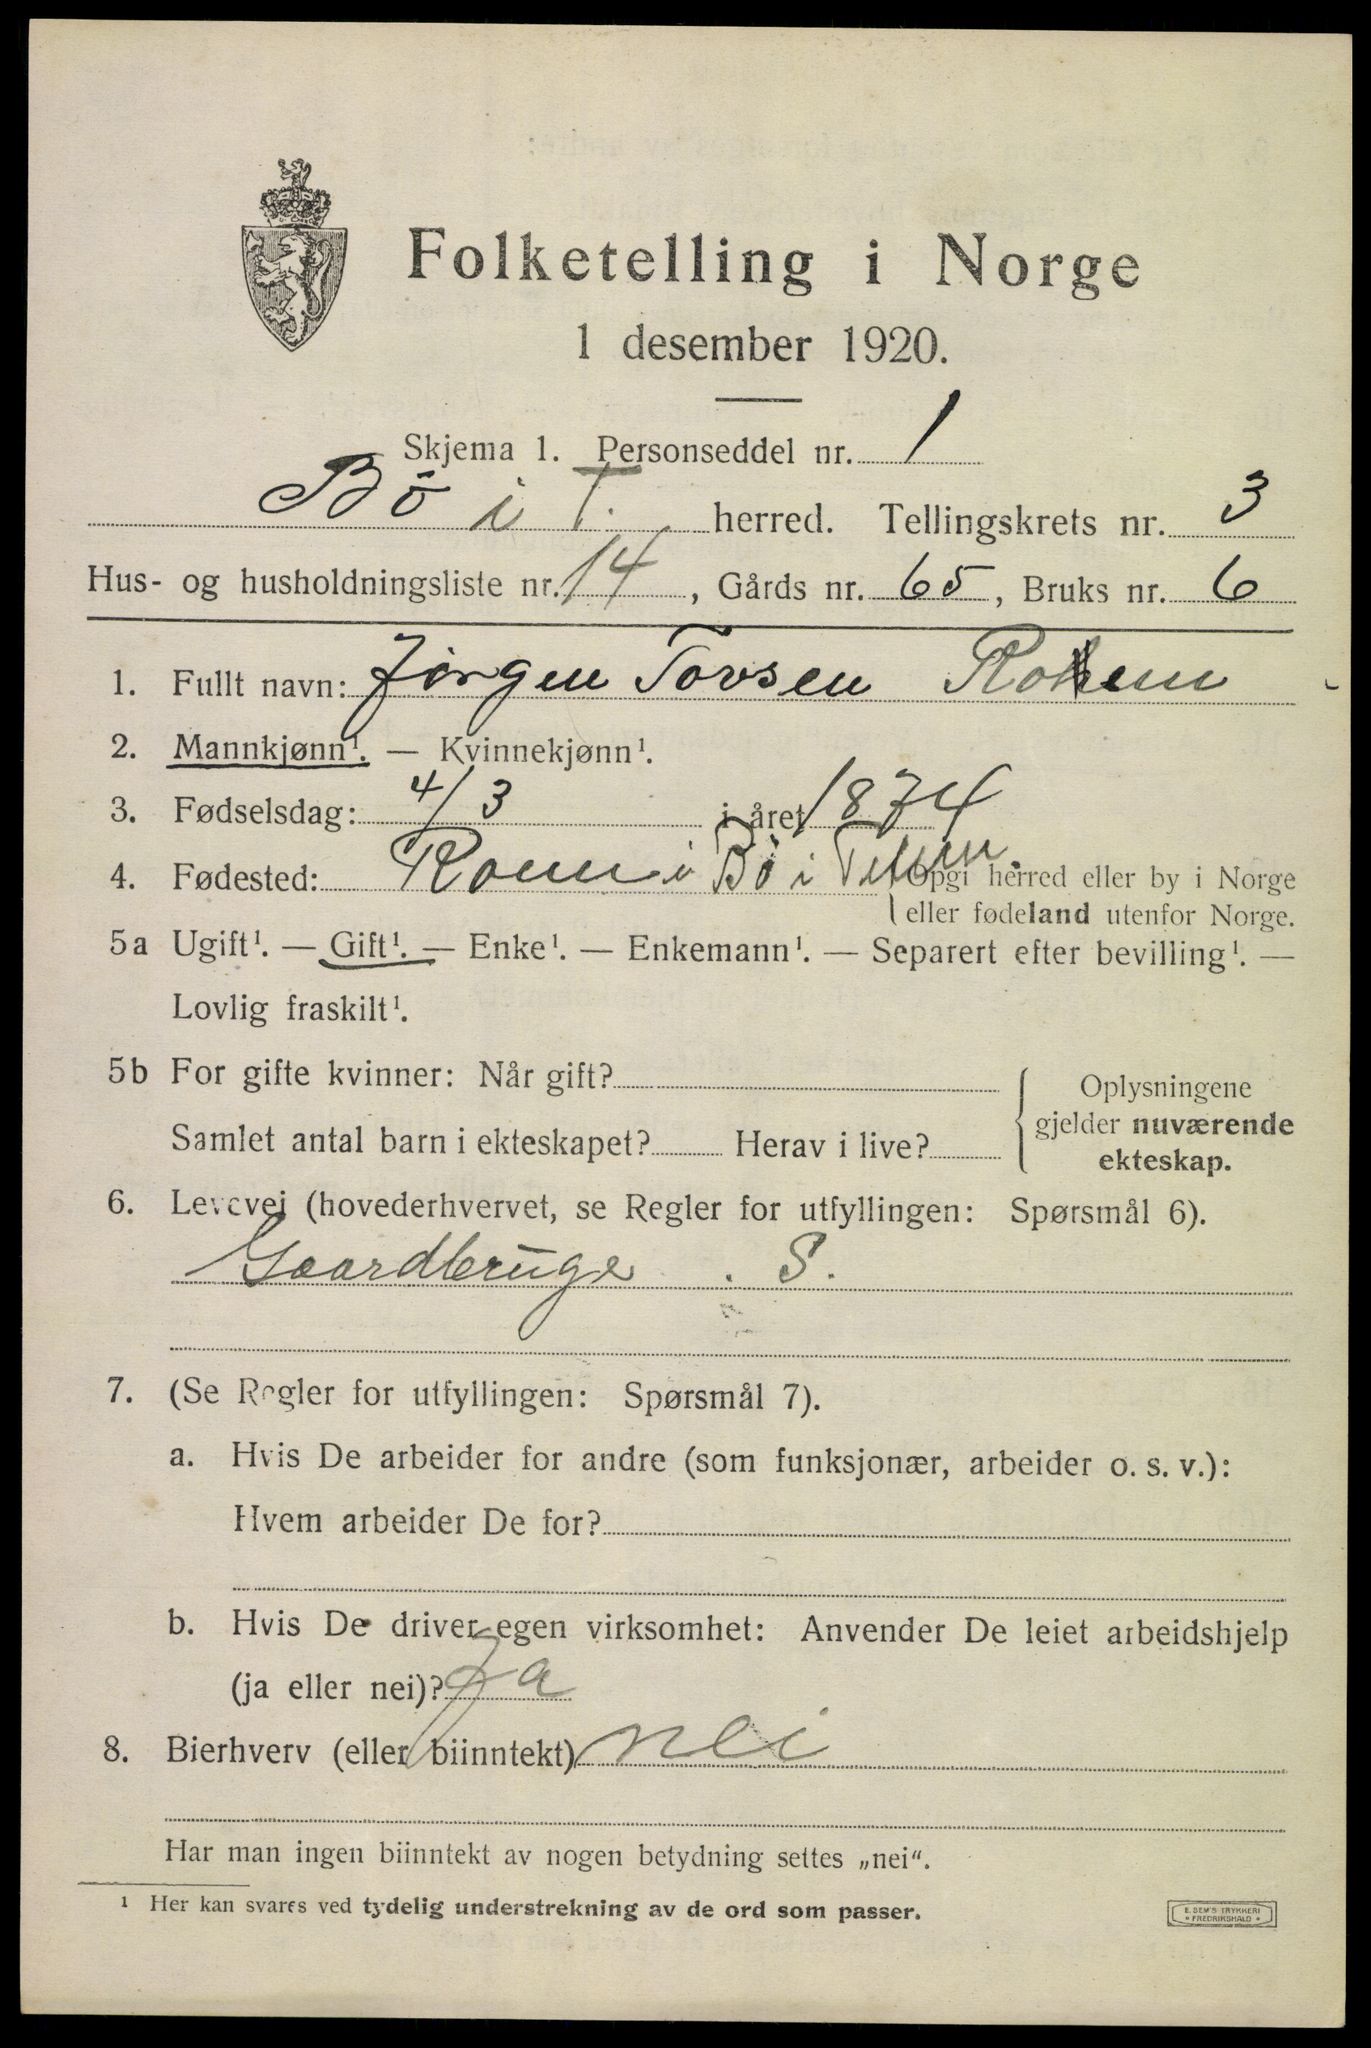 Folketelling i Norge
1 desember 1920.
Skjema 1. Personseddel nr. 1
Bö i T. herred. Tellingskrets nr. 3
Hus- og husholdningsliste nr. 14, Gårds nr. 65, Bruks nr. 6
1. Fullt navn: Jörgen Tovsen
2. Mannkjønn¹. — Kvinnekjønn¹.
3. Fødselsdag: 4/3 i året 1874
4. Fødested: i Bö i Opgi herred eller by i Norge
eller fødeland utenfor Norge.
5a Ugift¹. — Gift¹. — Enke¹. — Enkemann¹. — Separert efter bevilling¹. —
Lovlig fraskilt¹.
5b For gifte kvinner: Når gift?
Samlet antal barn i ekteskapet? Herav i live?
Oplysningene
gjelder nuværende
ekteskap.
6. Levevei (hovederhvervet, se Regler for utfyllingen: Spørsmål 6).
Gaardbruge . S.
7. (Se Regler for utfyllingen: Spørsmål 7).
a. Hvis De arbeider for andre (som funksjonær, arbeider o. s. v.):
Hvem arbeider De for?
b. Hvis De driver egen virksomhet: Anvender De leiet arbeidshjelp
(ja eller nei)? Ja
8. Bierhverv (eller biinntekt) nei
Har man ingen biinntekt av nogen betydning settes „nei“.
¹ Her kan svares ved tydelig understrekning av de ord som passer.
E. SEM'S TRYKKERI
FREDRIKSHALD